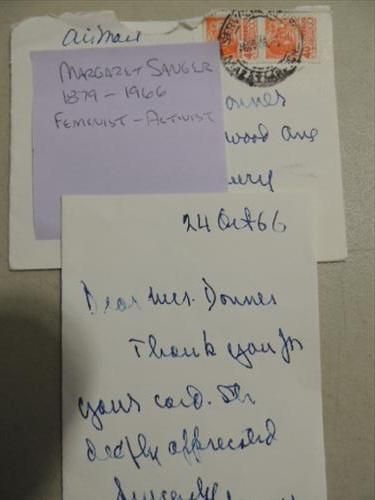 Airmail
MARGARET SANGER
1879 - 1966
FEMINIST - ACTIVIST
onnes
wood Ave
24 Oct 66
Dear Mrs. Donnes
Thank you for
your card. 
deeply appreciated
Sincerely